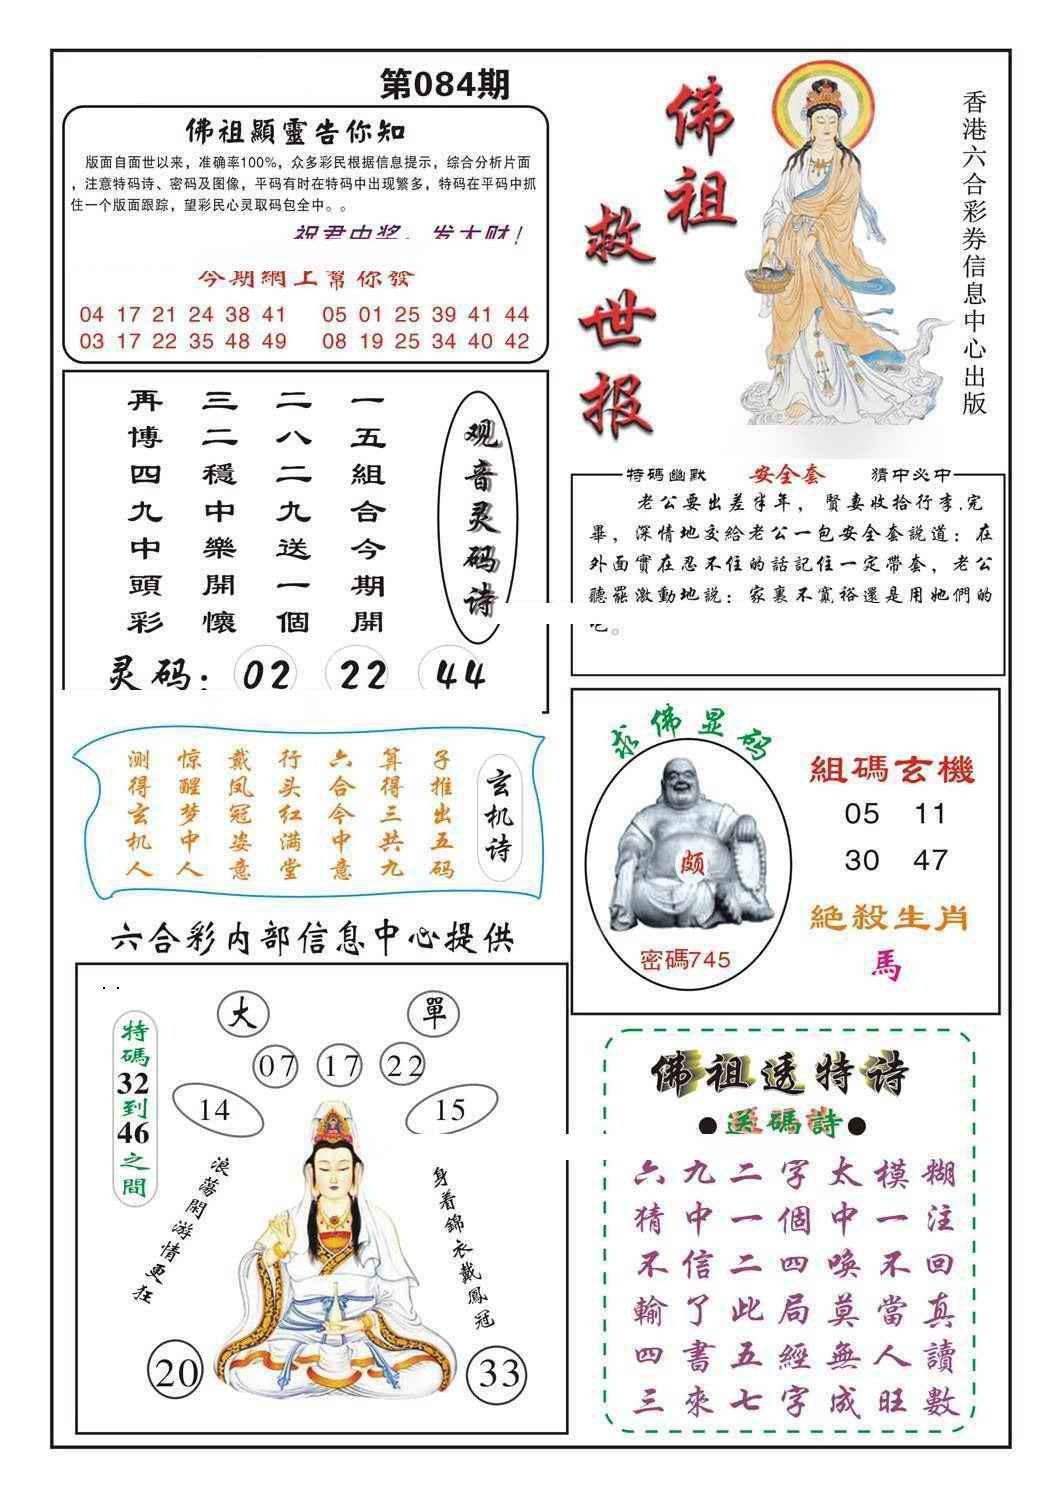 第084期
佛祖顯靈告你知
版面自面世以来，准确率100%，众多彩民根据信息提示，综合分析片面
，注意特码诗、密码及图像，平码有时在特码中出现繁多，特码在平码中抓
住一个版面跟踪，望彩民心灵取码包全中。。
祝君中奖，发大财！
今期網上幫你發
04 17 21 24 38 41 05 01 25 39 41 44
03 17 22 35 48 49 08 19 25 34 40 42
佛祖
救世报
香港六合彩券信息中心出版
观音灵码诗
一五組合今期開
二八二九送一個
三二穩中樂開懷
再博四九中頭彩
灵码：02 22 44
特碼幽默 安全套 猜中必中
老公要出差半年，賢妻收拾行李.完
畢，深情地交給老公一包安全套説道：在
外面實在忍不住的話記住一定帶套，老公
聽罷激動地説：家裏不寬裕還是用她們的
吧。
玄机诗
子推出五码
算得三共九
六合今中意
行头红满堂
戴凤冠姿意
惊醒梦中人
测得玄机人
求佛显码
颇
密碼745
組碼玄機
05 11
30 47
絕殺生肖
馬
六合彩内部信息中心提供
大 單
07 17 22
14 15
特碼32到46之間
浪蕩閑游情更狂
身着錦衣戴鳳冠
20 33
佛祖透特诗
●送碼詩●
六九二字太模糊
猜中一個中一注
不信二四喚不回
輸了此局莫當真
四書五經無人讀
三來七字成旺數